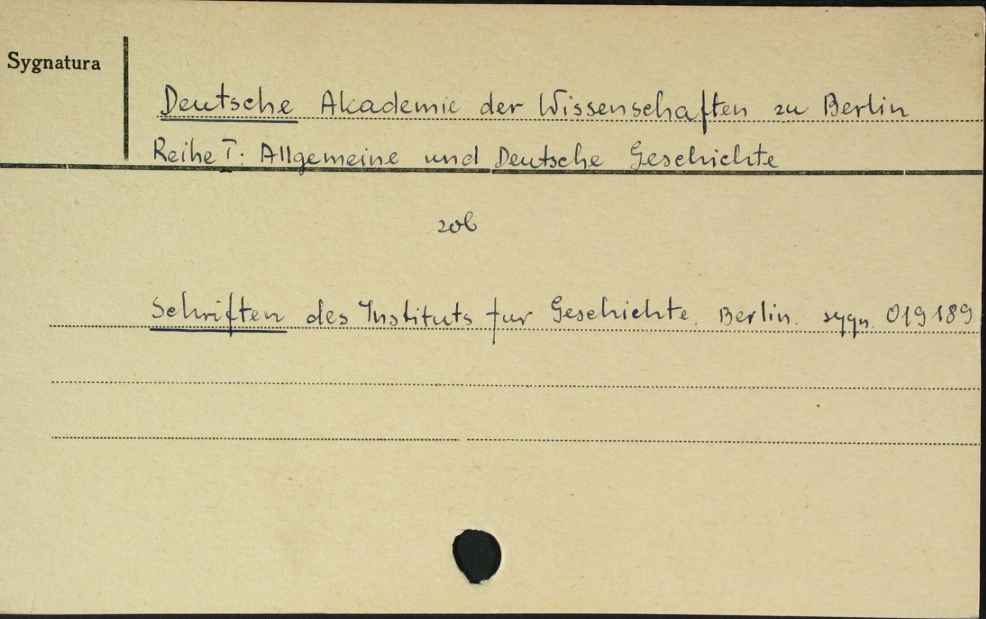 Sygnatura
Deutsche Akademie der Wissenschaften zu Berlin
Reihe I: Allgemeine und Deutsche Geschichte
zob
Schriften des Instituts fur Geschichte. Berlin. sygn. 019189